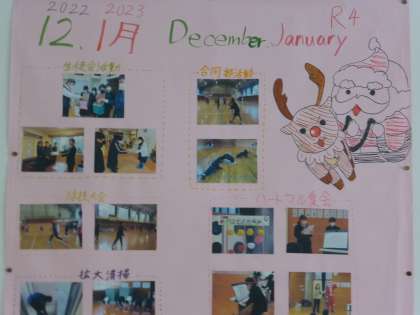 2022 2023
12.1月 December.January R4
生徒会活動
合同部活動
球技大会
ハートフル集会
拡大清掃